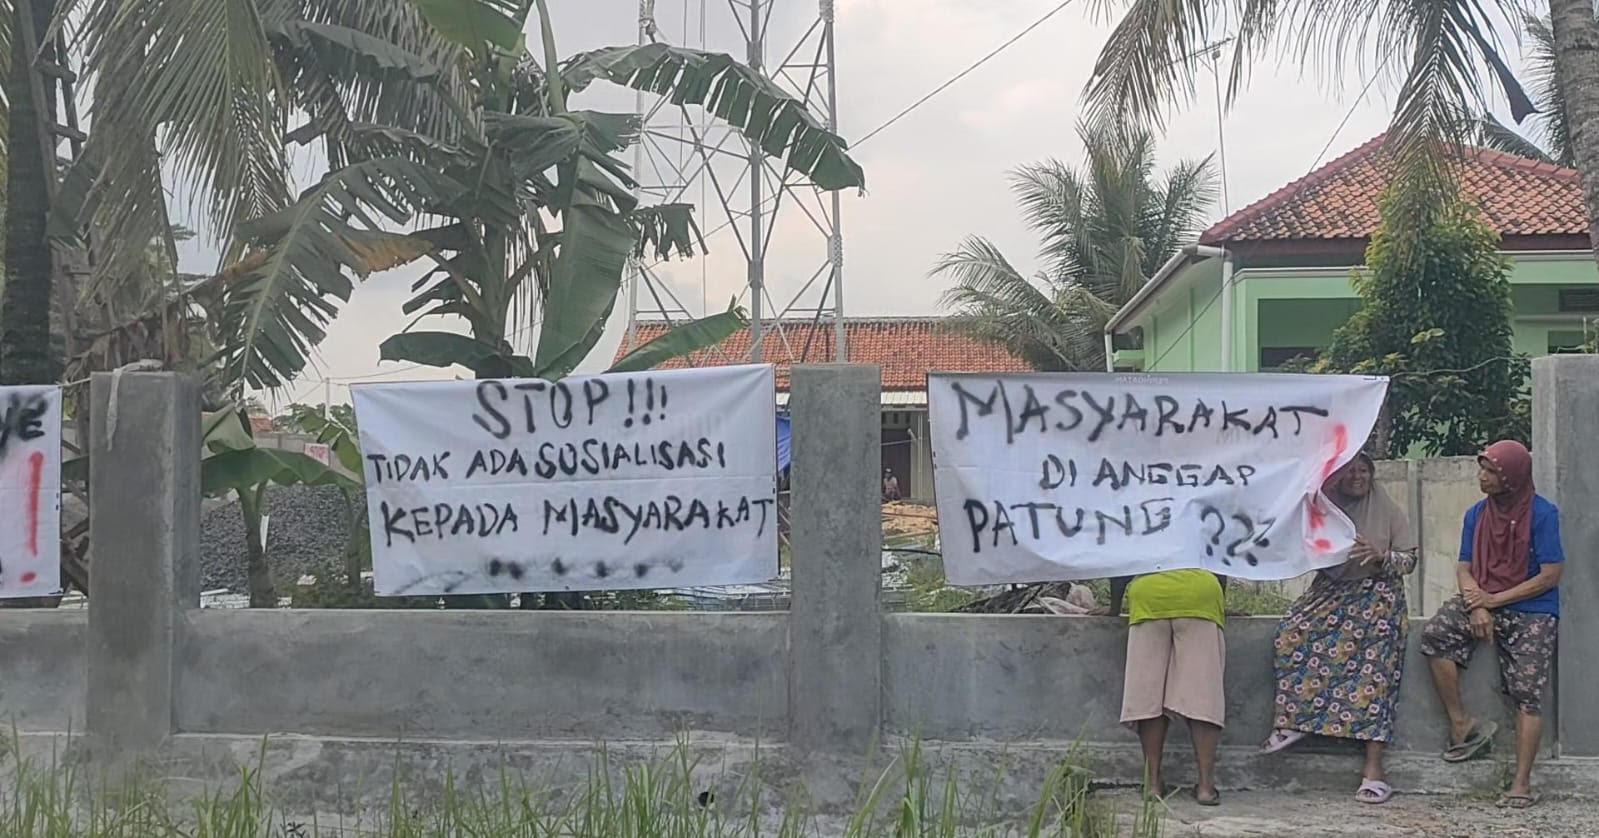 STOP!!!
TIDAK ADA SOSIALISASI
KEPADA MASYARAKAT
MASYARAKAT
DI ANGGAP
PATUNG ???
!